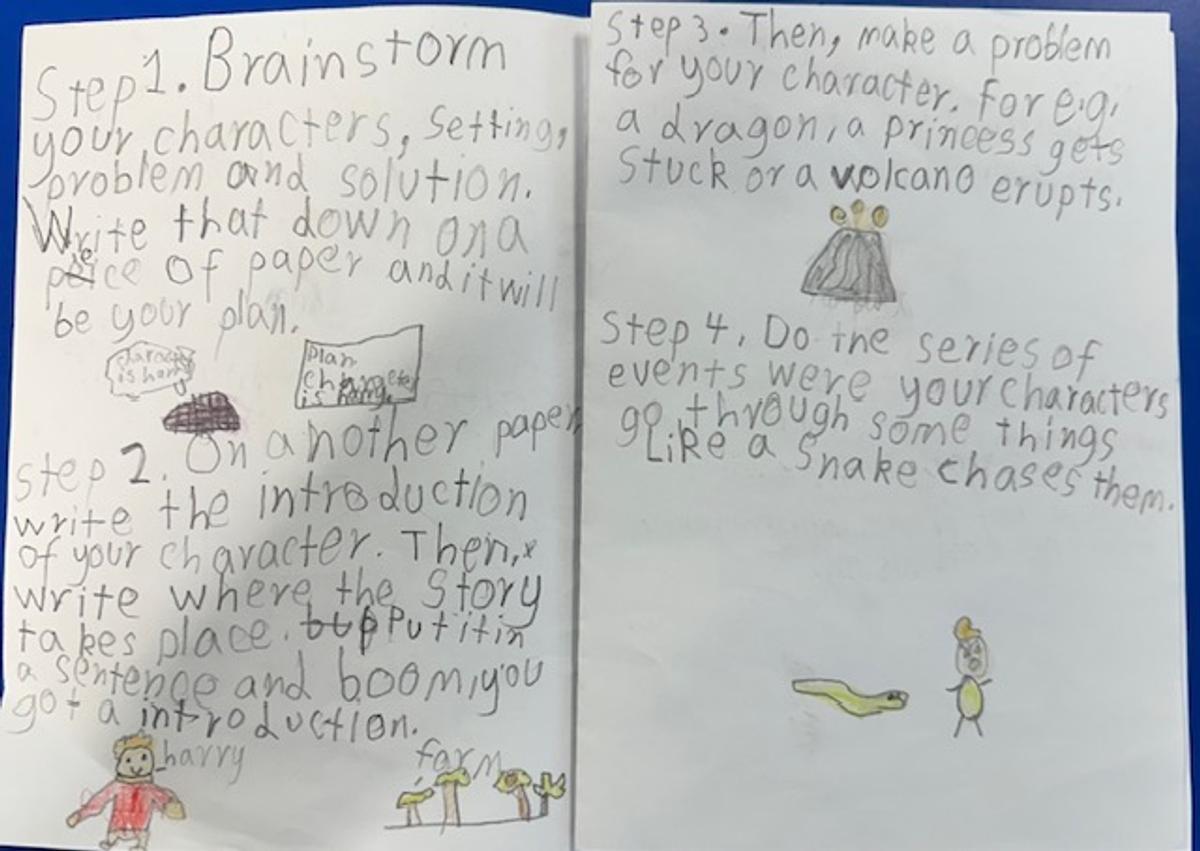 Step 1. Brainstorm
your characters, Setting,
problem and solution.
Write that down on a
peice of paper and it will
be your plan.
character
is harry
Plan
character
is harry.
Step 2. On another paper
write the introduction
of your character. Then,
write where the Story
takes place. Put it in
a sentence and boom, you
got a introduction.
harry
farm
Step 3. Then, make a problem
for your character. For e.g.
a dragon, a princess gets
Stuck or a volcano erupts.
Step 4. Do the series of
events were your characters
go through some things
Like a Snake chases them.